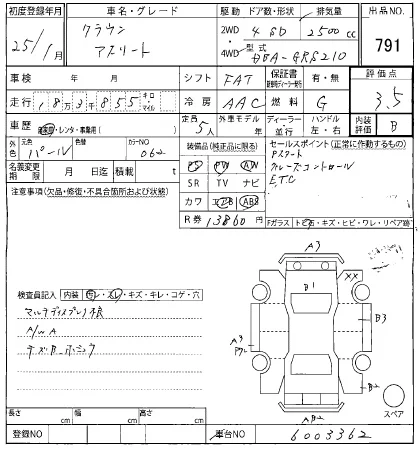 初度登録年月 車名・グレード 駆動 ドア数・形状 排気量 出品NO.
25/1月 クラウン アスリート 2WD 4 SD 2500cc 791
4WD 型式 DBA-GRS210
車検 年 月 シフト FAT 保証書 有・無 評価点
走行 18万3千855 キロ・マイル 冷房 AAC 燃料 G 3.5
車歴 自家用・レンタ・事業用( ) 定員 5人 外車モデル年 年 ディーラー・並行 ハンドル 左・右 内装評価 B
外色 元色 パール 色替 カラーNO 062 装備品(純正品に限る) セールスポイント(正常に作動するもの)
名義変更期限 月 日迄 積載 t PS PW AW
注意事項(欠品・修復・不具合箇所および状態) SR TV ナビ
カワ エアB ABS
R券 13860円
Pスタート
クルーズコントロール
ETC
Fガラス トビ石・キズ・ヒビ・ワレ・リペア跡
A3
XX
B1
B3
A3
Pワレ
B2
AB2
検査員記入 内装 モレ・スレ・キズ・キレ・コゲ・穴
マルチディスプレイ様
A/W A
スペア
長さ cm 幅 cm 高さ cm
登録NO 車台NO 6003362